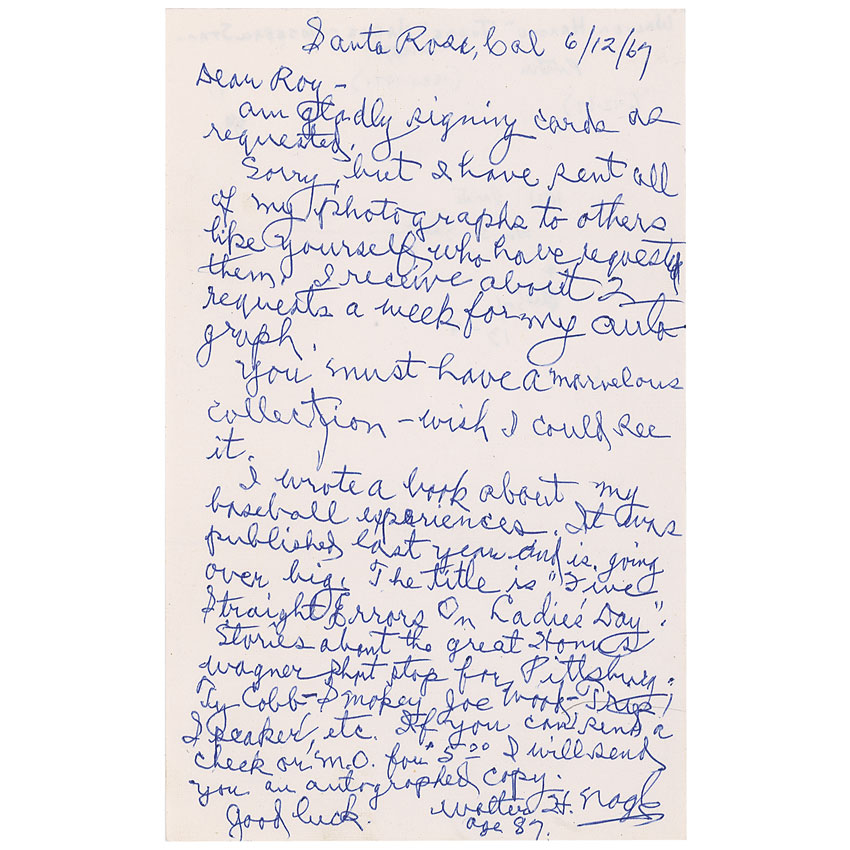 Santa Rosa, Cal 6/12/67
Dear Roy -
am gladly signing cards as
requested.
Sorry, but I have sent all
of my photographs to others
like yourself who have requested
them. I receive about 2
requests a week for my auto
graph.
You must have a marvelous
collection - wish I could see
it.
I wrote a book about my
baseball experiences. It was
published last year and is going
over big. The title is "Five
Straight Errors On Ladies' Day".
Stories about the great Honus
wagner short stop for Pittsburg.
Ty Cobb - Smokey Joe Wood - Tris
Speaker, etc. If you can send a
check or M.O. for $5.00 I will send
you an autographed copy.
Good luck. Walter H. Nagle
age 87.